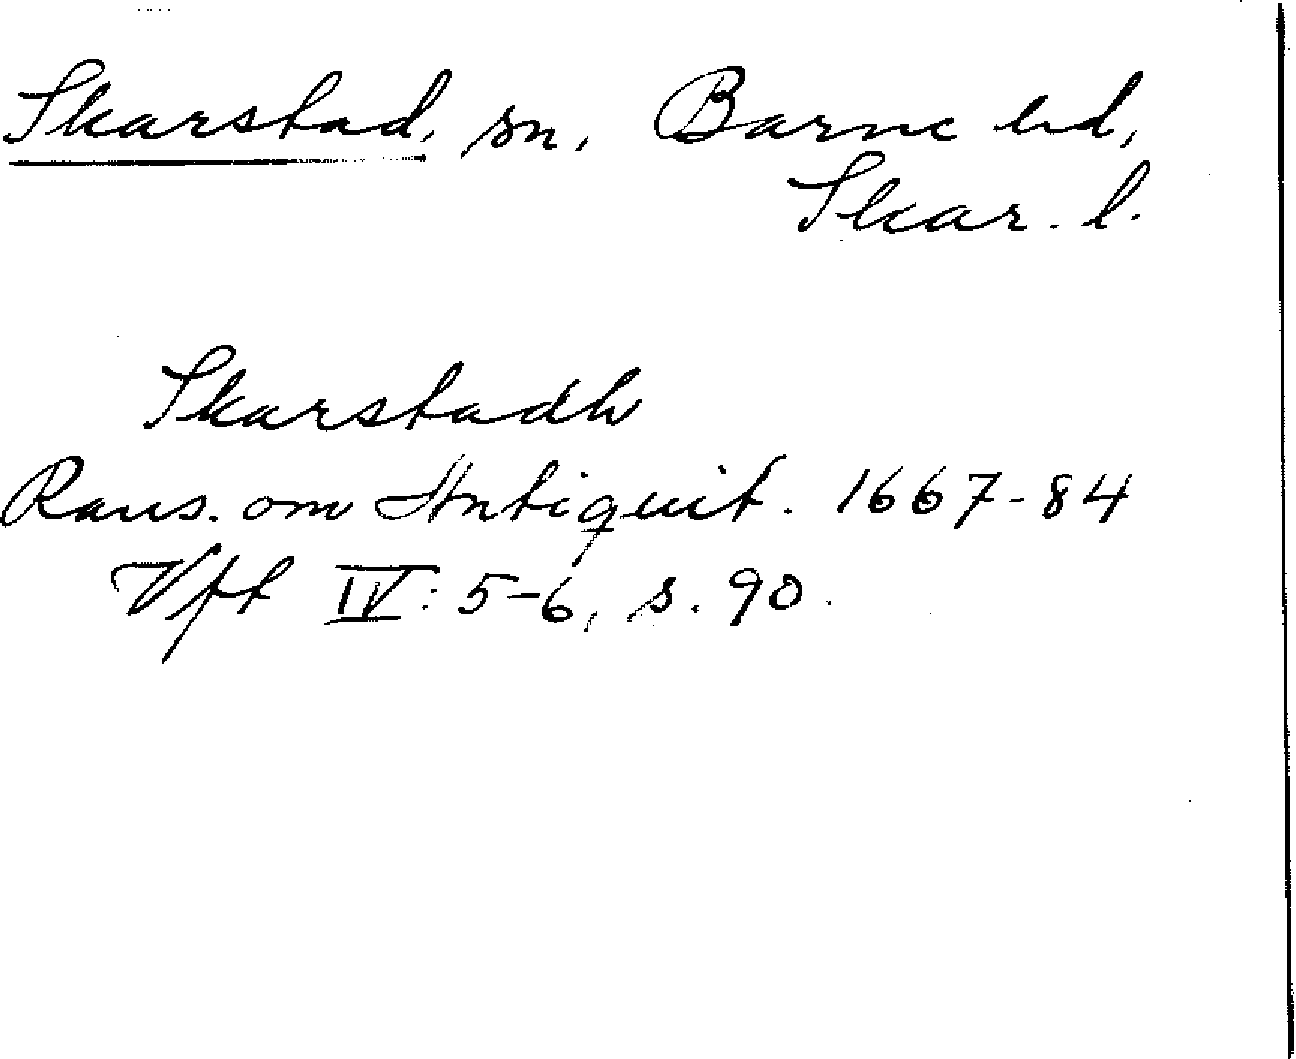 Skarstad, sn, Barne hd,
Skar. l.
Skarstadh
Rans. om Antiquit. 1667-84
Vft IV: 5-6, s. 90.